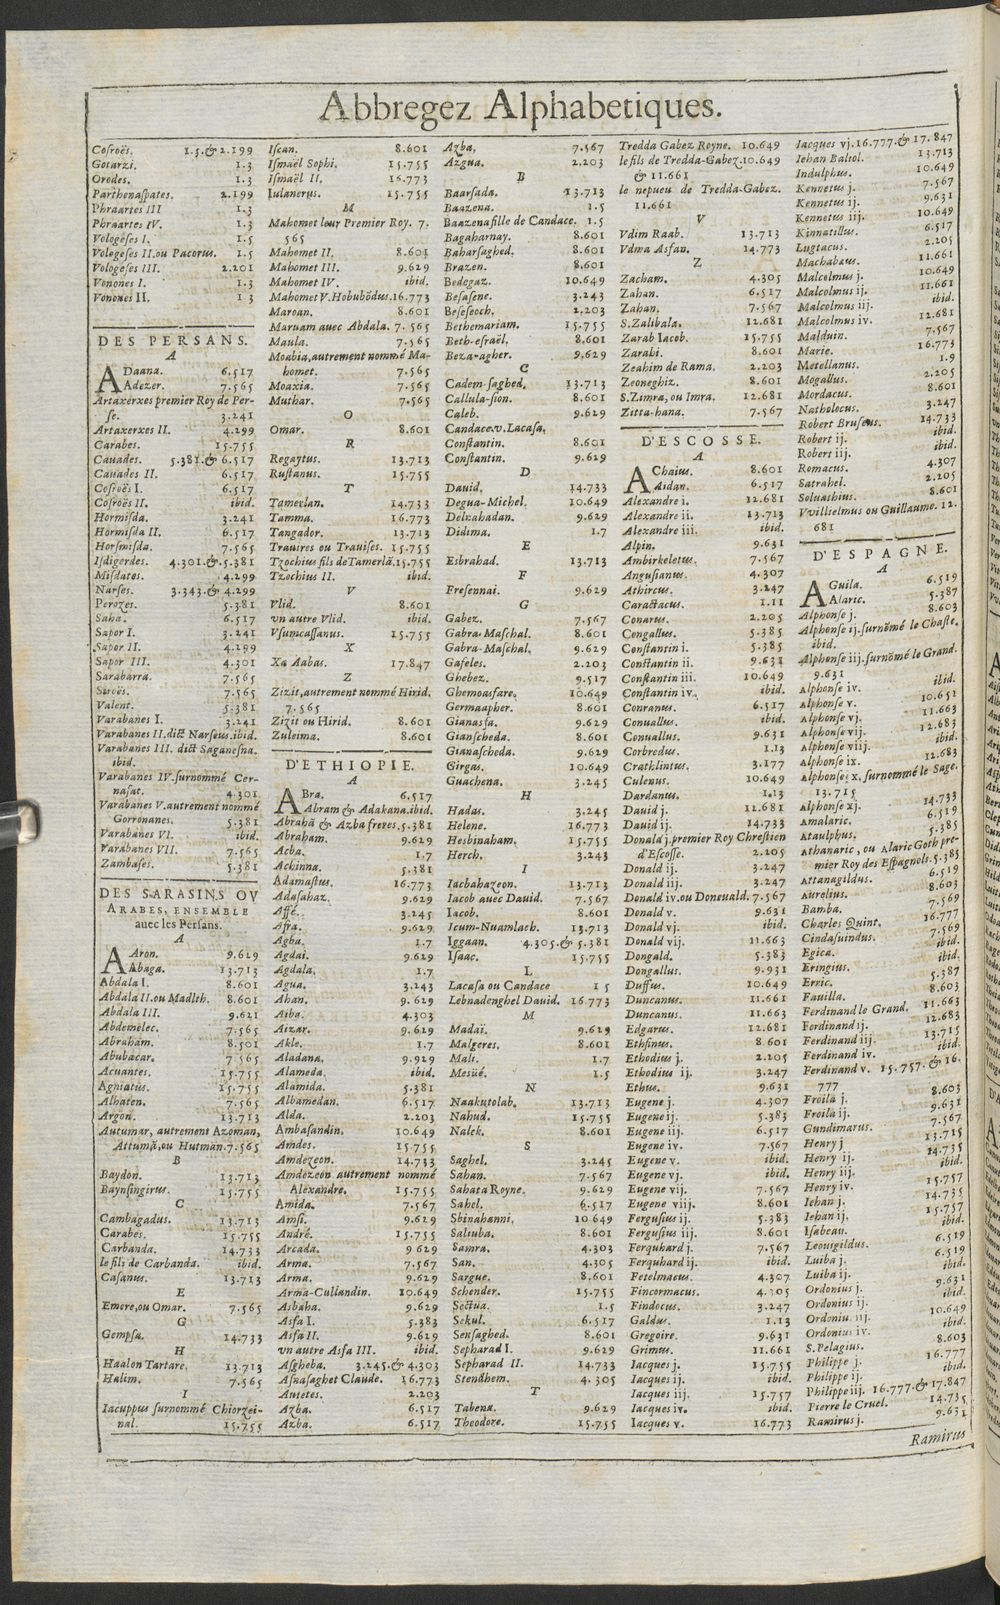 Abbregez Alphabetiques.
Cosroës. 1.5.& 2.199
Gotarzi. 1.3
Orodes. 1.3
Parthenaspates. 2.199
Phraartes III 1.3
Phraartes IV. 1.3
Vologeses I. 1.5
Volegeses II.ou Pacorus. 1.5
Vologeses III. 2.201
Vonones I. 1.3
Vonones II. 1.3
DES PERSANS.
A
ADaana. 6.517
Adezer. 7.565
Artaxerxes premier Roy de Per-
se. 3.241
Artaxerxes II. 4.299
Carabes. 15.755
Cauades. 5.381.& 6.517
Cauades II. 6.517
Cosroës I. 6.517
Cosroës II. ibid.
Hormisda. 3.241
Hormisda II. 6.517
Horsmisda. 7.565
Isdigerdes. 4.301.& 5.381
Misdates. 4.299
Narses. 3.343.& 4.299
Perozes. 5.381
Saha. 6.517
Sapor I. 3.241
Sapor II. 4.299
Sapor III. 4.301
Sarabarra. 7.565
Siroës. 7.565
Valent. 5.381
Varabanes I. 3.241
Varabanes II.dict Narseus.ibid.
Varabanes III. dict Saganesna.
ibid.
Varabanes IV.surnommé Cer-
nasat. 4.301
Varabanes V.autrement nommé
Gorronanes. 5.381
Varabanes VI. ibid.
Varabanes VII. 7.565
Zambases. 5.381
DES SARASINS OV
ARABES, ENSEMBLE
auec les Persans.
A
AAron. 9.629
Abaga. 13.713
Abdala I. 8.601
Abdala II.ou Madlth. 8.601
Abdala III. 9.621
Abdemelec. 7.565
Abraham. 8.501
Abubacar. 7.565
Acuantes. 15.755
Agniatus. 15.755
Alhaten. 7.565
Argon. 13.713
Autumar, autrement Azoman,
Attumā,ou Hutman.7.565
B
Baydon. 13.713
Baynsingirus. 15.755
C
Cambagadus. 13.713
Carabes. 15.755
Carbanda. 14.733
le fils de Carbanda. ibid.
Casanus. 13.713
E
Emere,ou Omar. 7.565
G
Gempsa. 14.733
H
Haalon Tartare. 13.713
Halim. 7.565
I
Iacuppus surnommé Chiorzei-
nal. 15.755
Iscan. 8.601
Ismaël Sophi. 15.755
Ismaël II. 16.773
Iulanerus. 15.755
M
Mahomet leur Premier Roy. 7.
565
Mahomet II. 8.601
Mahomet III. 9.629
Mahomet IV. ibid.
Mahomet V.Hobubōdus.16.773
Maroan. 8.601
Maruam auec Abdala. 7.565
Maula. 7.565
Moabia,autrement nommé Ma-
homet. 7.565
Moaxia. 7.565
Muthar. 7.565
O
Omar. 8.601
R
Regaytus. 13.713
Rustanus. 15.755
T
Tamerlan. 14.733
Tamma. 16.773
Tangador. 13.713
Trauires ou Trauises. 15.755
Tzochius fils de Tamerlā.15.755
Tzochius II. ibid.
V
Vlid. 8.601
vn autre Vlid. ibid.
Vsumcassanus. 15.755
X
Xa Aabas. 17.847
Z
Zizit,autrement nommé Hirid.
7.565
Zizit ou Hirid. 8.601
Zuleima. 8.601
D'ETHIOPIE.
A
ABra. 6.517
Abram & Adakana.ibid.
Abrahā & Azba freres.5.381
Abraham. 9.629
Acba. 1.7
Achinna. 5.381
Adamastus. 16.773
Adasahaz. 9.629
Affé. 3.245
Afra. 9.629
Agba. 1.7
Agdai. 9.629
Agdala. 1.7
Agua. 3.243
Ahan. 9.629
Aiba. 4.303
Aizar. 9.629
Akle. 1.7
Aladana. 9.929
Alameda. ibid.
Alamida. 5.381
Albamedan. 6.517
Alda. 2.203
Ambasandin. 10.649
Amdes. 15.755
Amdezeon. 14.733
Amdezeon autrement nommé
Alexandre. 15.755
Amida. 7.567
Amsi. 9.629
André. 15.755
Arcada. 9 629
Arma. 7.567
Arma. 9.629
Arma-Cullandin. 10.649
Asbaha. 9.629
Asfa I. 5.383
Asfa II. 9.629
vn autre Asfa III. ibid.
Asgheba. 3.245.& 4.303
Asnasaghet Claude. 16.773
Autetes. 2.203
Azba. 6.517
Azba. 6.517
Azba. 7.567
Azgua. 2.203
B
Baarsada. 13.713
Baazena. 1.5
Baazena fille de Candace. 1.5
Bagaharnay. 8.601
Baharsaghed. 8.601
Brazen. 8.601
Bedegaz. 10.649
Besasene. 3.243
Beseseoch. 2.203
Bethemariam. 15.755
Beth-esraël. 8.601
Beza-agher. 9.629
C
Cadem-saghed. 13.713
Callula-sion. 8.601
Caleb. 9.629
Candace.v.Lacasa.
Constantin. 8.601
Constantin. 9.629
D
Dauid. 14.733
Degua-Michel. 10.649
Delnahadan. 9.629
Didima. 1.7
E
Esbrahad. 13.713
F
Fresennai. 9.629
G
Gabez. 7.567
Gabra-Maschal. 8.601
Gabra-Maschal. 9.629
Gaseles. 2.203
Ghebez. 9.517
Ghemoasfare. 10.649
Germaapher. 8.601
Gianasfa. 9.629
Gianscheda. 8.601
Gianascheda. 9.629
Girgas. 10.649
Guachena. 3.245
H
Hadas. 3.245
Helene. 16.773
Hesbinaham. 15.755
Herch. 3.243
I
Iacbahazeon. 13.713
Iacob auec Dauid. 7.567
Iacob. 8.601
Icum-Nuamlach. 13.713
Iggaan. 4.305.& 5.381
Isaac. 15.755
L
Lacasa ou Candace 1 5
Lebnadenghel Dauid. 16.773
M
Madai. 9.629
Malgeres. 8.601
Mali. 1.7
Mesüé. 1.5
N
Naakutolab. 13.713
Nahud. 15.755
Nalek. 8.601
S
Saghel. 3.245
Sahan. 7.567
Sahata Royne. 9.629
Sahel. 6.517
Sbinahanni. 10 649
Saliuba. 8.601
Samra. 4.303
San. 4.305
Sargue. 8.601
Schender. 15.755
Sectua. 1.5
Sekul. 6.517
Sensaghed. 8.601
Sepharad I. 9.629
Sepharad II. 14.733
Stendhem. 4.305
T
Tabena. 9.629
Theodore. 15.755
Tredda Gabez Royne. 10.649
le fils de Tredda-Gabez.10.649
& 11.661
le nepueu de Tredda-Gabez.
11.661
V
Vdim Raab. 13.713
Vdma Asfan. 14.773
Z
Zacham. 4.305
Zahan. 6.517
Zahan. 7.567
S.Zalibala. 12.681
Zarab Iacob. 15.755
Zarahi. 8.601
Zeahim de Rama. 2.203
Zeoneghiz. 8.601
S.Zimra, ou Imra. 12.681
Zitta-hana. 7.567
D'ESCOSSE.
A
AChaius. 8.601
Aidan. 6.517
Alexandre i. 12.681
Alexandre ii. 13.713
Alexandre iii. ibid.
Alpin. 9.631
Ambirkeletus. 7.567
Angusianus. 4.307
Athircus. 3.247
Caractacus. 1.11
Conarus. 2.205
Cengallus. 5.385
Constantin i. 5.385
Constantin ii. 9.631
Constantin iii. 10.649
Constantin iv. ibid.
Conranus. 6.517
Conuallus. ibid.
Conuallus. 9.631
Corbredus. 1.13
Crathlintus. 3.177
Culenus. 10.649
Dardanus. 1.13
Dauid j. 12.681
Dauid ij. 14.733
Donald j.premier Roy Chrestien
d'Escosse. 2.205
Donald ij. 3.247
Donald iij. 3.247
Donald iv.ou Doneuald. 7.567
Donald v. 9.631
Donald vj. ibid.
Donald vij. 11.663
Dongald. 5.383
Dongallus. 9.931
Duffus. 10.649
Duncanus. 11.661
Duncanus. 11.663
Edgarus. 12.681
Ethfinus. 8.601
Ethodius j. 2.105
Ethodius ij. 3.247
Ethus. 9.631
Eugene j. 4.307
Eugene ij. 5.383
Eugene iij. 6.517
Eugene iv. 7.567
Eugene v. ibid.
Eugene vj. ibid.
Eugene vij. 7.567
Eugene viij. 8.601
Fergusius ij. 5.383
Fergusius iij. 8.601
Ferquhard j. 7.567
Ferquhard ij. ibid.
Fetelmacus. 4.307
Fincormacus. 4.305
Findocus. 3.247
Galdus. 1.13
Gregoire. 9.631
Grimus. 11.661
Iacques j. 15.755
Iacques ij. ibid.
Iacques iij. 15.757
Iacques iv. ibid.
Iacques v. 16.773
Iacques vj. 16.777.& 17. 847
Iehan Baliol. 13.713
Indulphus. 10.649
Kennetus j. 7.567
Kennetus ij. 9.631
Kennetus iij. 10.649
Kinnatillus. 6.517
Lugtacus. 2.205
Machabæus. 11.661
Malcelmus j. 10.649
Malcolmus ij. 11.661
Malcolmus iij. ibid.
Malcolmus iv. 12.681
Malduin. 7.567
Marie. 16.773
Metellanus. 1.9
Mogallus. 2.205
Mordacus. 8.601
Natholocus. 3.247
Robert Bruseus. 14.733
Robert ij. ibid.
Robert iij. ibid.
Romacus. 4.307
Satrahel. 2.205
Soluathius. 8.601
Vvillielmus ou Guillaume. 12.
681
D'ESPAGNE.
A
AGuila. 6.519
Alaric. 5.387
Alphonse j. 8.603
Alphonse ij.surnōmé le Chaste.
ibid.
Alphonse iij.surnōmé le Grand.
9.631
Alphonse iv. ibid.
Alphonse v. 10.651
Alphonse vj. 11.663
Alphonse vij. 12.683
Alphonse viij. ibid.
Alphonse ix. 12.683
Alphonse x. surnommé le Sage.
13.715
Alphonse xj. 14.733
Amalaric. 6.519
Ataulphus. 5.385
Athanaric, ou Alaric Goth pre-
mier Roy des Espagnols.5.385
Attanagildus. 6.519
Aurelius. 8.603
Bamba. 7.569
Charles Quint. 16.777
Cindasuindus. 7.569
Egica. ibid.
Eringius. ibid.
Erric. 5.387
Fauilla. 8.603
Ferdinand le Grand. 11.663
Ferdinand ij. 12.683
Ferdinand iij. 13.715
Ferdinand iv. ibid.
Ferdinand v. 15. 757. & 16.
777
Froila j. 8.603
Froila ij. 9.631
Gundimarus. 7.567
Henry j 13.715
Henry ij. 14.735
Henry iij. ibid.
Henry iv. 15.757
Iehan j. 14.735
Iehan ij. 15.757
Isabeau. ibid.
Leouigildus. 6.519
Luiba j. 6.519
Luiba ij. ibid.
Ordonius j. 9.631
Ordonius ij. ibid.
Ordonius iij. 10.649
Ordonius iv. ibid.
S.Pelagius. 8.603
Philippe j. 16.777
Philippe ij. ibid.
Philippe iij. 16.777.& 17.847
Pierre le Cruel. 14.735
Ramirus j. 9.631
Ramirus